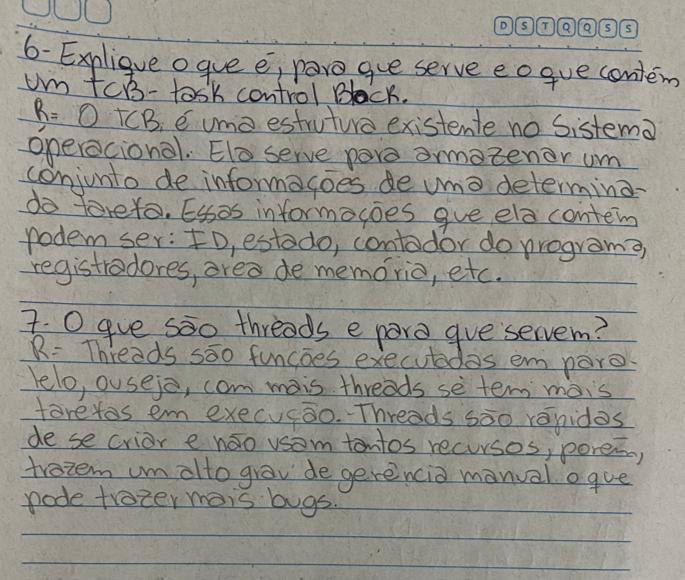 D S T Q Q S S
6- Explique o que é, para que serve e o que contém
um TCB- task control Block.
R= O TCB é uma estrutura existente no sistema
operacional. Ela serve para armazenar um
conjunto de informações de uma determina-
da tarefa. Essas informações que ela contém
podem ser: ID, estado, contador do programa,
registradores, area de memória, etc.
7- O que são threads e para que servem?
R= Threads são funções executadas em para-
lelo, ou seja, com mais threads se tem mais
tarefas em execução. Threads são rápidas
de se criar e não usam tantos recursos, porém,
trazem um alto grau de gerência manual o que
pode trazer mais bugs.